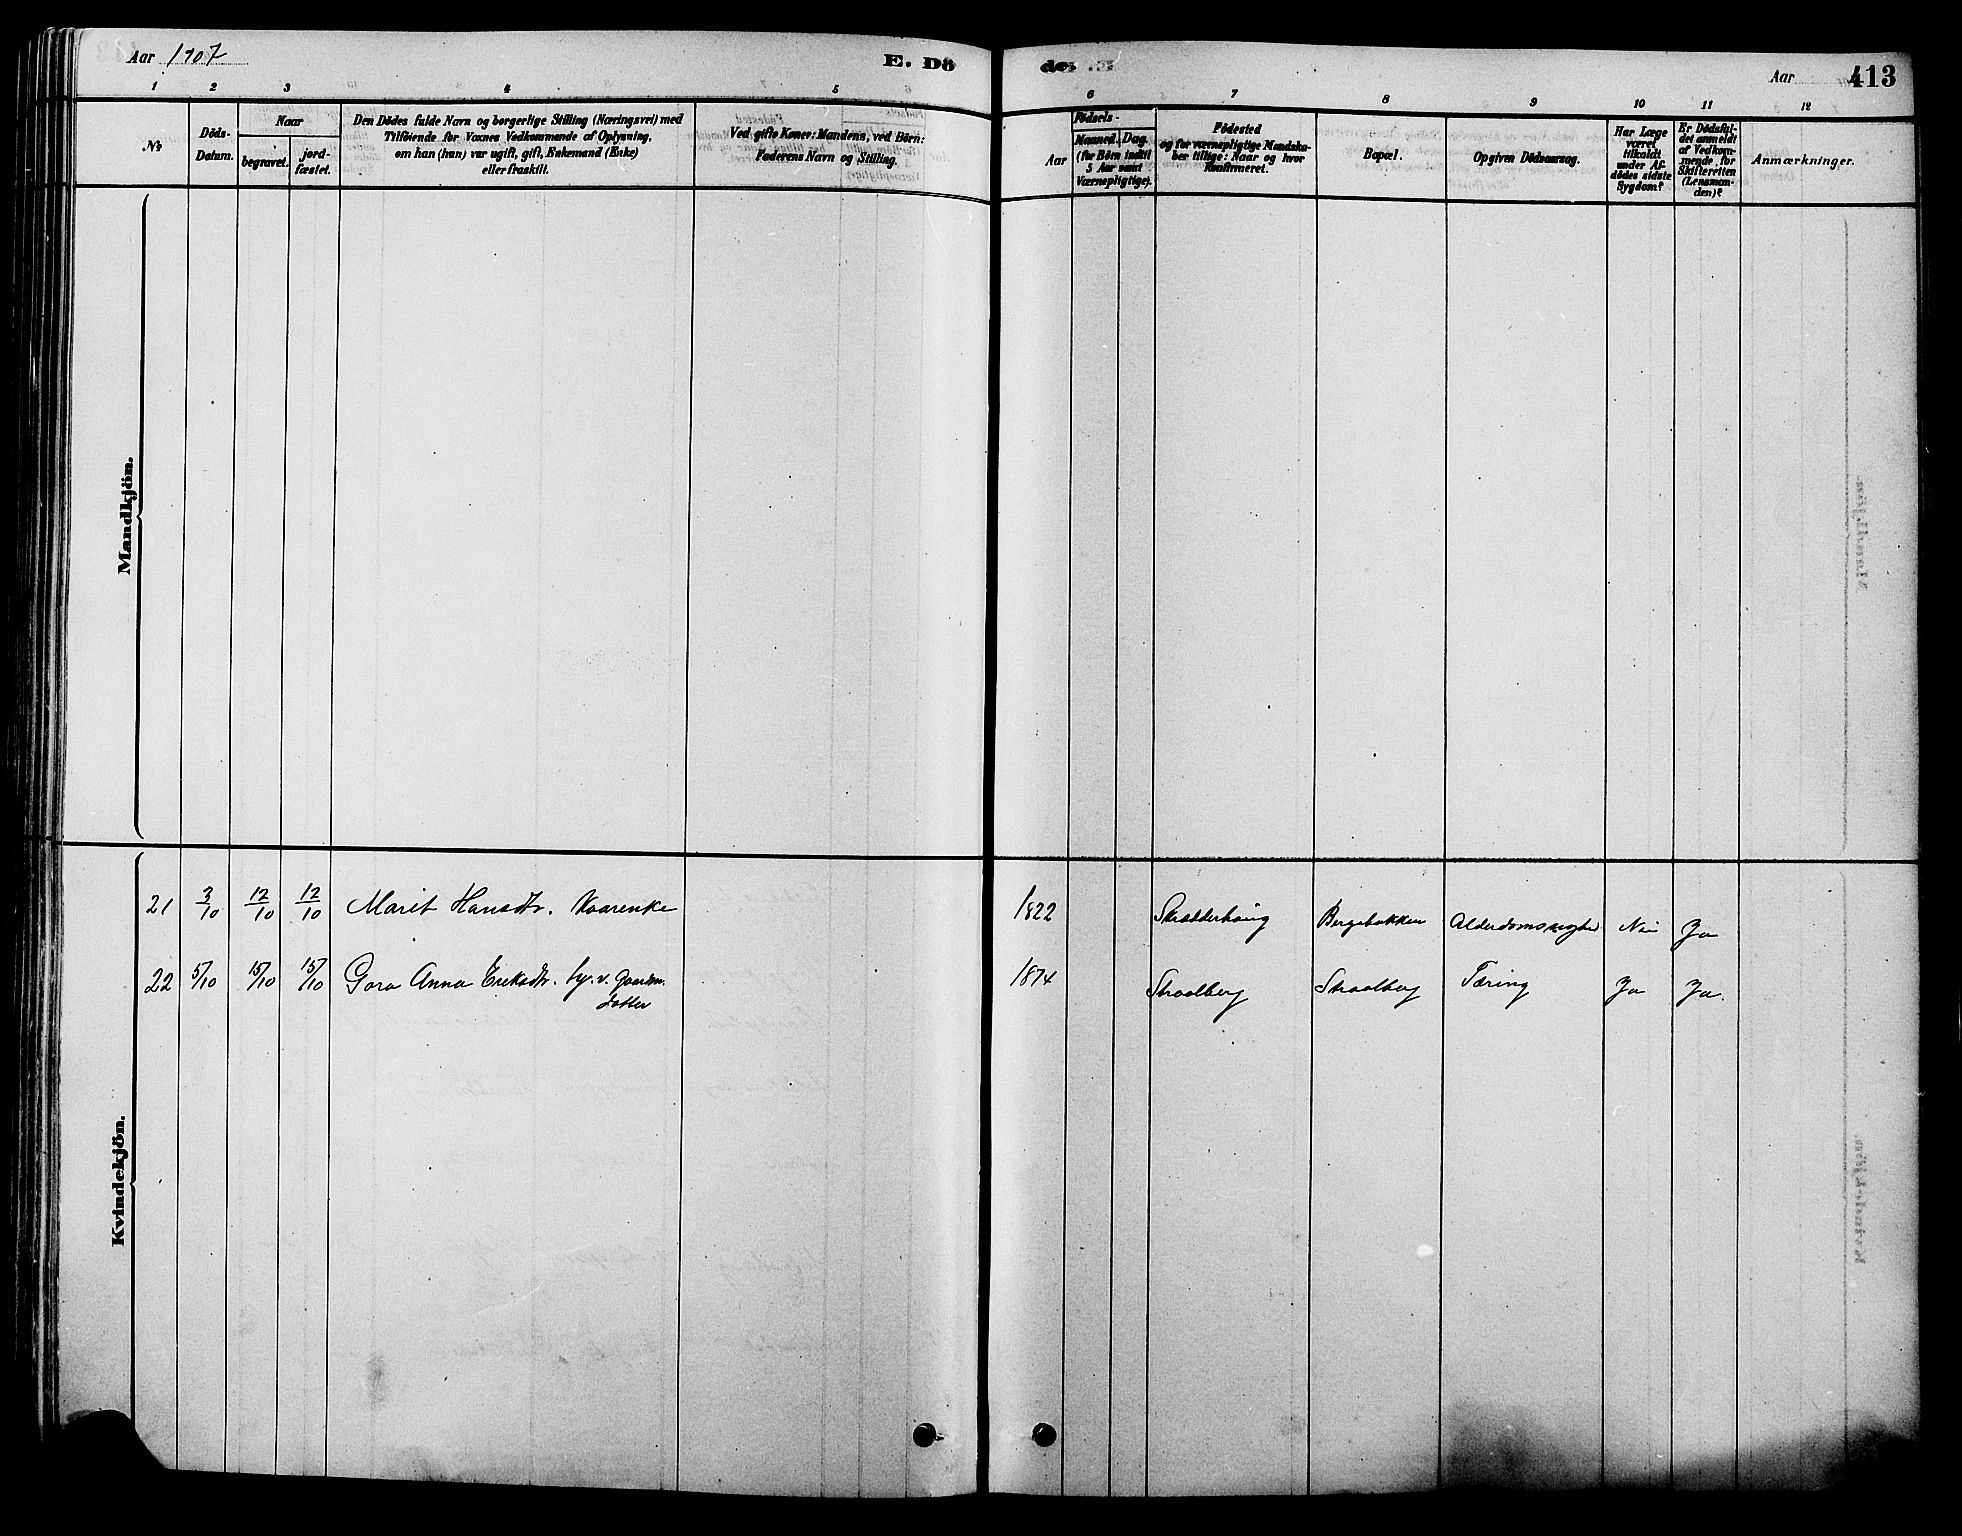 Aar 1907 E. Dö
de: Aar 413
1 2 3 4 5 6 7 8 9 10 11 12
№
Döds-
Datum.
Naar
begravet.
jord-
fæstet.
Den Dödes fulde Navn og borgerlige Stilling (Næringsvei) med
Tilföiende for Voxnes Vedkommende af Oplysning,
om han (hun) var ugift, gift, Enkemand (Enke)
eller fraskilt.
Ved gifte Koner: Mandens, ved Börn:
Faderens Navn og Stilling.
Födsels-
Aar
Maaned. Dag.
(for Börn indtil
5 Aar samt
Værnepligtige).
Födested
og for værnepligtige Mandska-
ber tillige: Naar og hvor
Konfirmeret.
Bopæl.
Opgiven Dödsaarsag.
Har Læge
været
tilkaldt
under Af-
dödes sidste
Sygdom?
Er Dödsfal-
det anmeldt
af Vedkom-
mende for
Skifteretten
(Lensman-
den)?
Anmærkninger.
Mandkjön.
Kvindekjön.
21 3/10 12/10 12/10 Marit Hansdtr. 1822 Bergebakken Alderdomssvaghed Nei Ja
22 5/10 15/10 15/10 Goro Anna Eriksdtr. v. Gaardm. 1874 Straalberg Straalberg Tæring Ja Ja.
datter